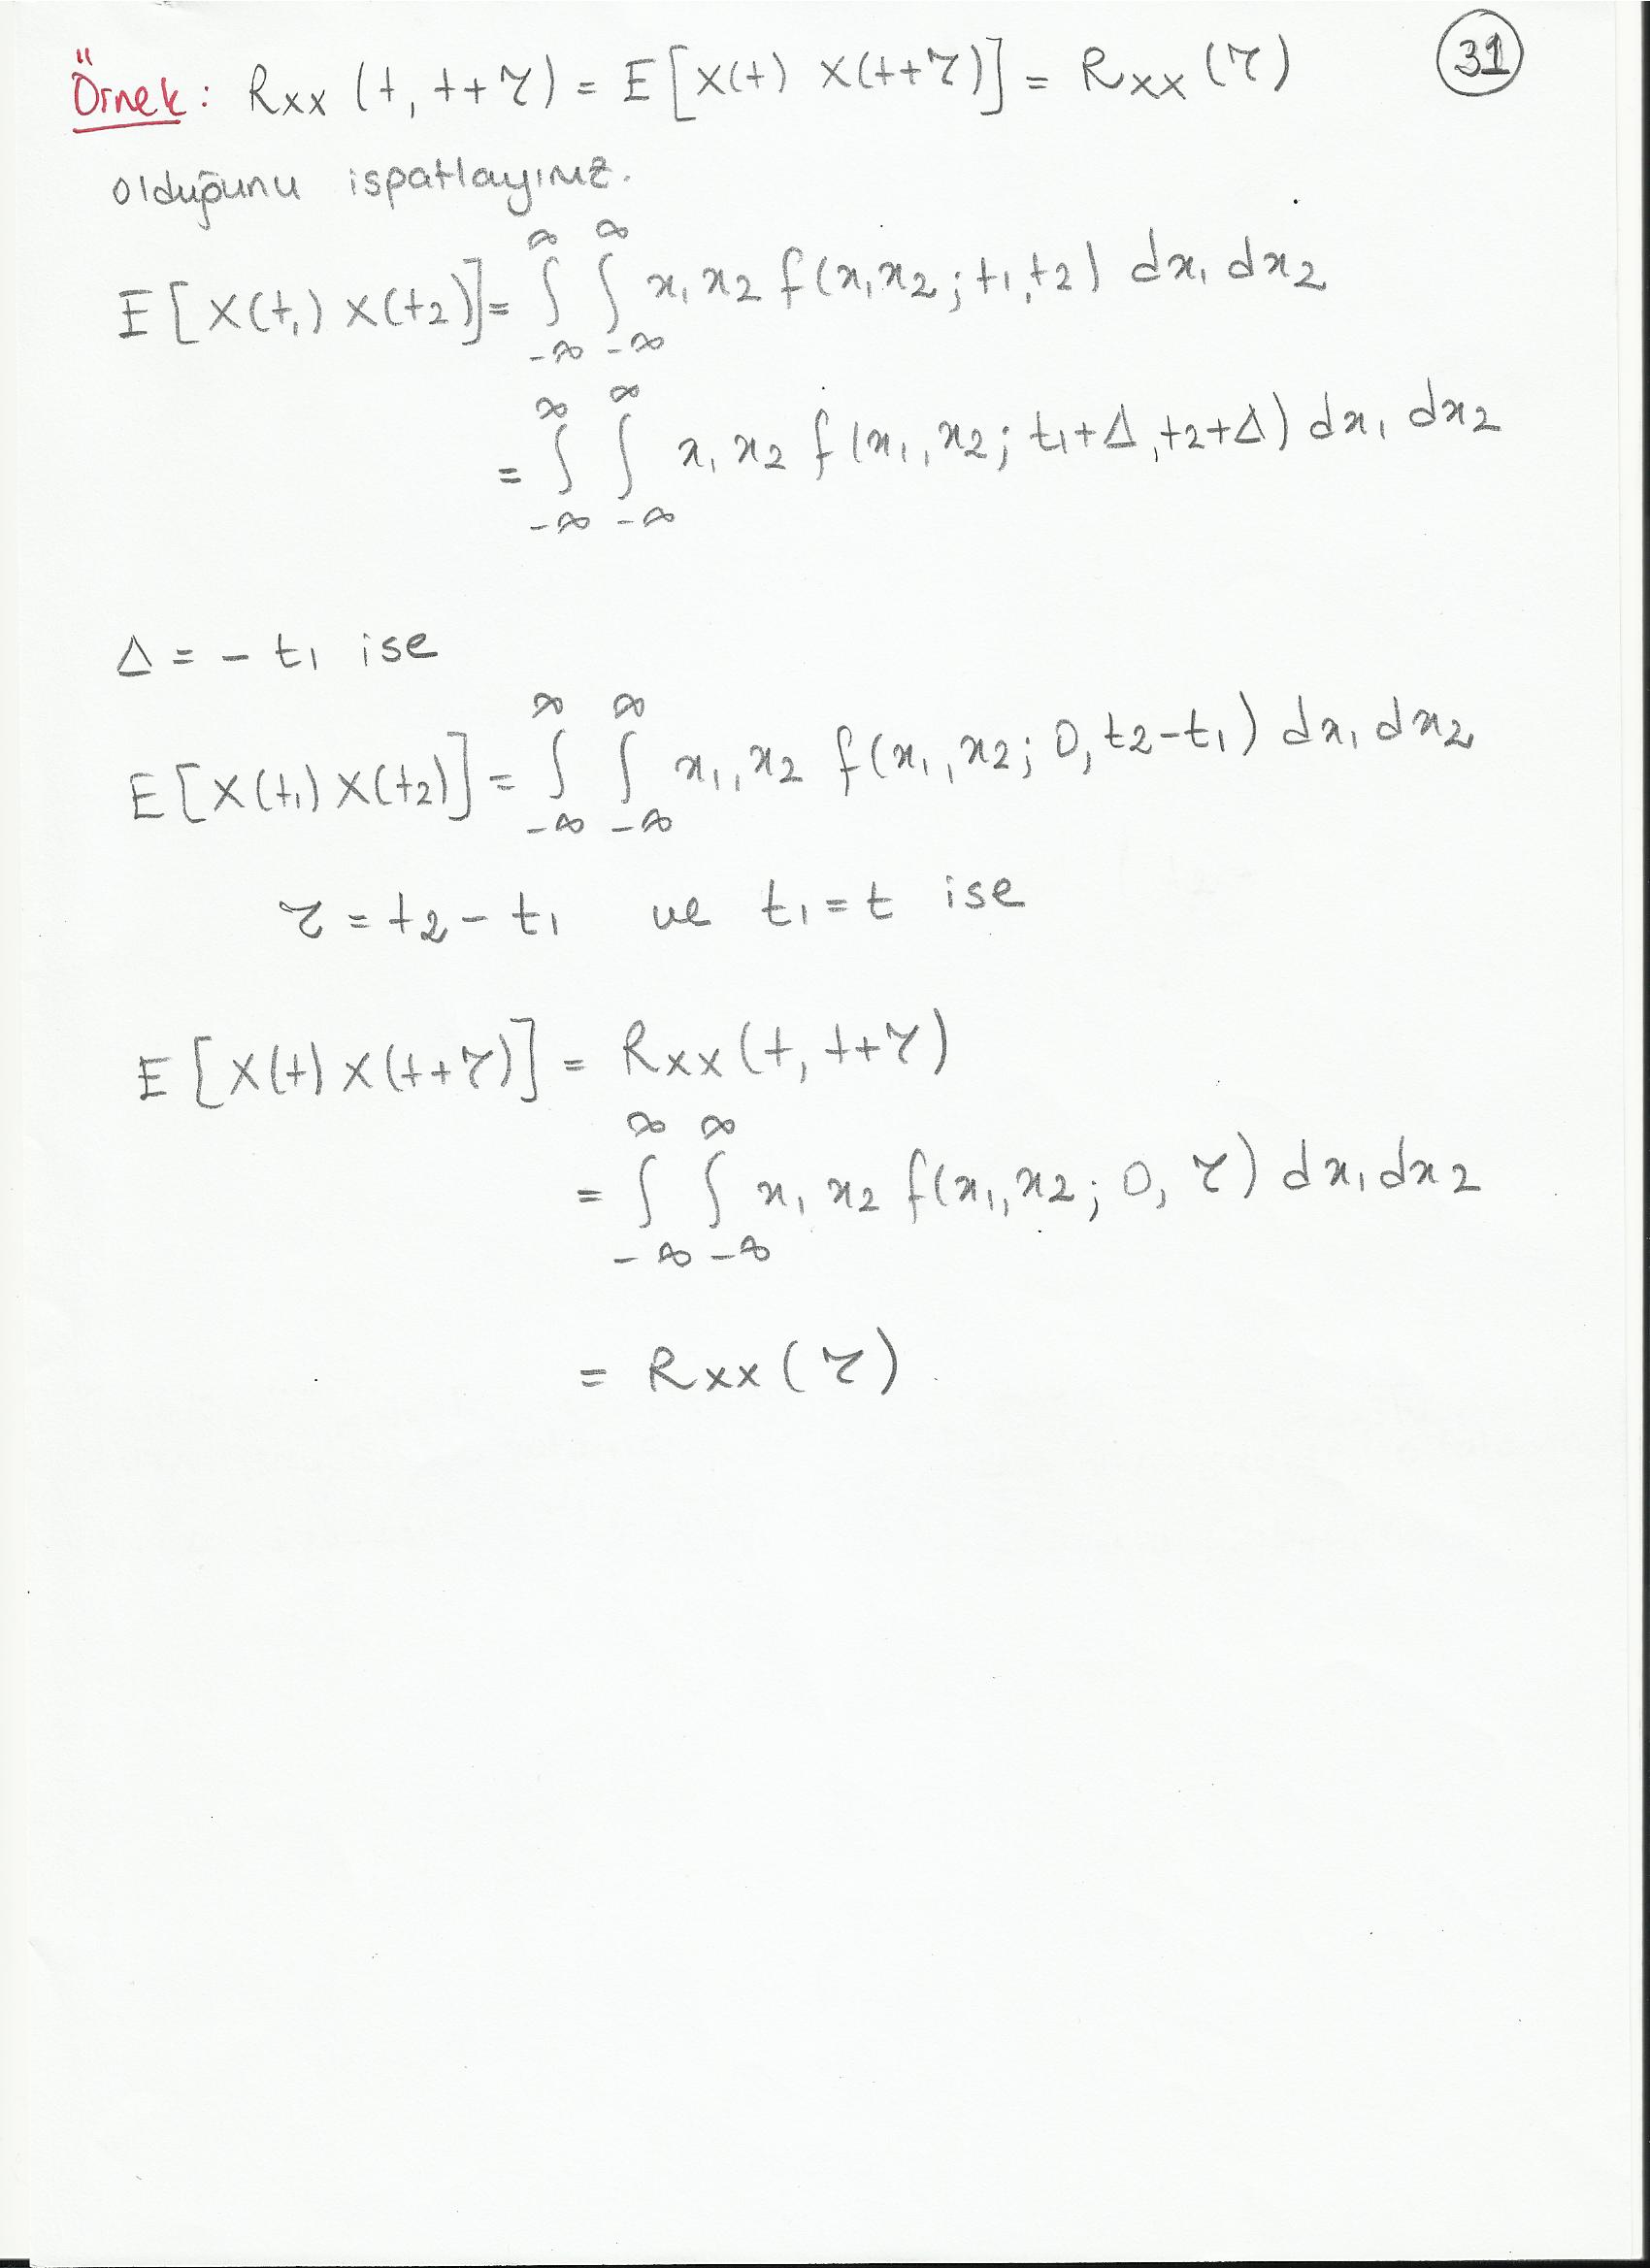 Örnek: Rxx (t, t+τ) = E[X(t) X(t+τ)] = Rxx (τ) 31
olduğunu ispatlayınız.
E[X(t₁) X(t₂)] = ∫_{-∞}^{∞} ∫_{-∞}^{∞} x₁ x₂ f(x₁x₂; t₁,t₂) dx₁ dx₂
= ∫_{-∞}^{∞} ∫_{-∞}^{∞} x₁ x₂ f(x₁,x₂; t₁+Δ,t₂+Δ) dx₁ dx₂
Δ = - t₁ ise
E[X(t₁) X(t₂)] = ∫_{-∞}^{∞} ∫_{-∞}^{∞} x₁,x₂ f(x₁,x₂; 0,t₂-t₁) dx₁ dx₂
τ = t₂ - t₁ ve t₁ = t ise
E[X(t) X(t+τ)] = Rxx (t, t+τ)
= ∫_{-∞}^{∞} ∫_{-∞}^{∞} x₁ x₂ f(x₁,x₂; 0, τ) dx₁ dx₂
= Rxx (τ)